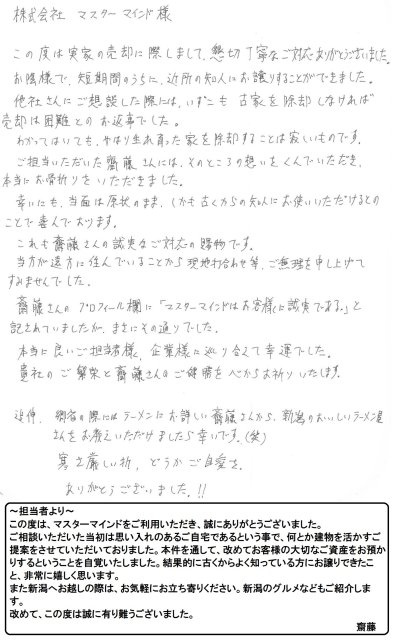 株式会社 マスターマインド様
この度は実家の売却に際しまして、懇切丁寧なご対応ありがとうございました。
お陰様で、短期間のうちに、近所の知人にお譲りすることができました。
他社さんにご相談した際には、いずこも 古家を除却しなければ
売却は困難とのお返事でした。
わかってはいても、やはり生れ育った家を除却することは寂しいものです。
ご担当いただいた齋藤さんには、そのところの想いをくんでいただき、
本当にお骨折りをいただきました。
幸いにも、当面は原状のまま、しかも古くからの知人にお使いいただけるとの
ことで喜んでおります。
これも齋藤さんの誠実なご対応の賜物です。
当方が遠方に住んでいることから現地打合わせ等、ご無理を申し上げて
すみませんでした。
齋藤さんのプロフィール欄に「マスターマインドはお客様に誠実である。」と
記されていましたが、まさにその通りでした。
本当に良いご担当者様、企業様に巡り合えて幸運でした。
貴社のご繁栄と齋藤さんのご健勝を心からお祈りいたします。
追伸、 の際にはラーメンにお詳しい齋藤さんから、新潟のおいしいラーメン屋
さんをお教えいただけましたら幸いです。(笑)
寒さ厳しい折、どうかご自愛を。
ありがとうございました。!!
～担当者より～
この度は、マスターマインドをご利用いただき、誠にありがとうございました。
ご相談いただいた当初は思い入れのあるご自宅であるという事で、何とか建物を活かすご
提案をさせていただいておりました。本件を通して、改めてお客様の大切なご資産をお預か
りするということを自覚いたしました。結果的に古くからよく知っている方にお譲りできたこ
と、非常に嬉しく思います。
また新潟へお越しの際は、お気軽にお立ち寄りください。新潟のグルメなどもご紹介しま
す。
改めて、この度は誠に有り難うございました。
齋藤